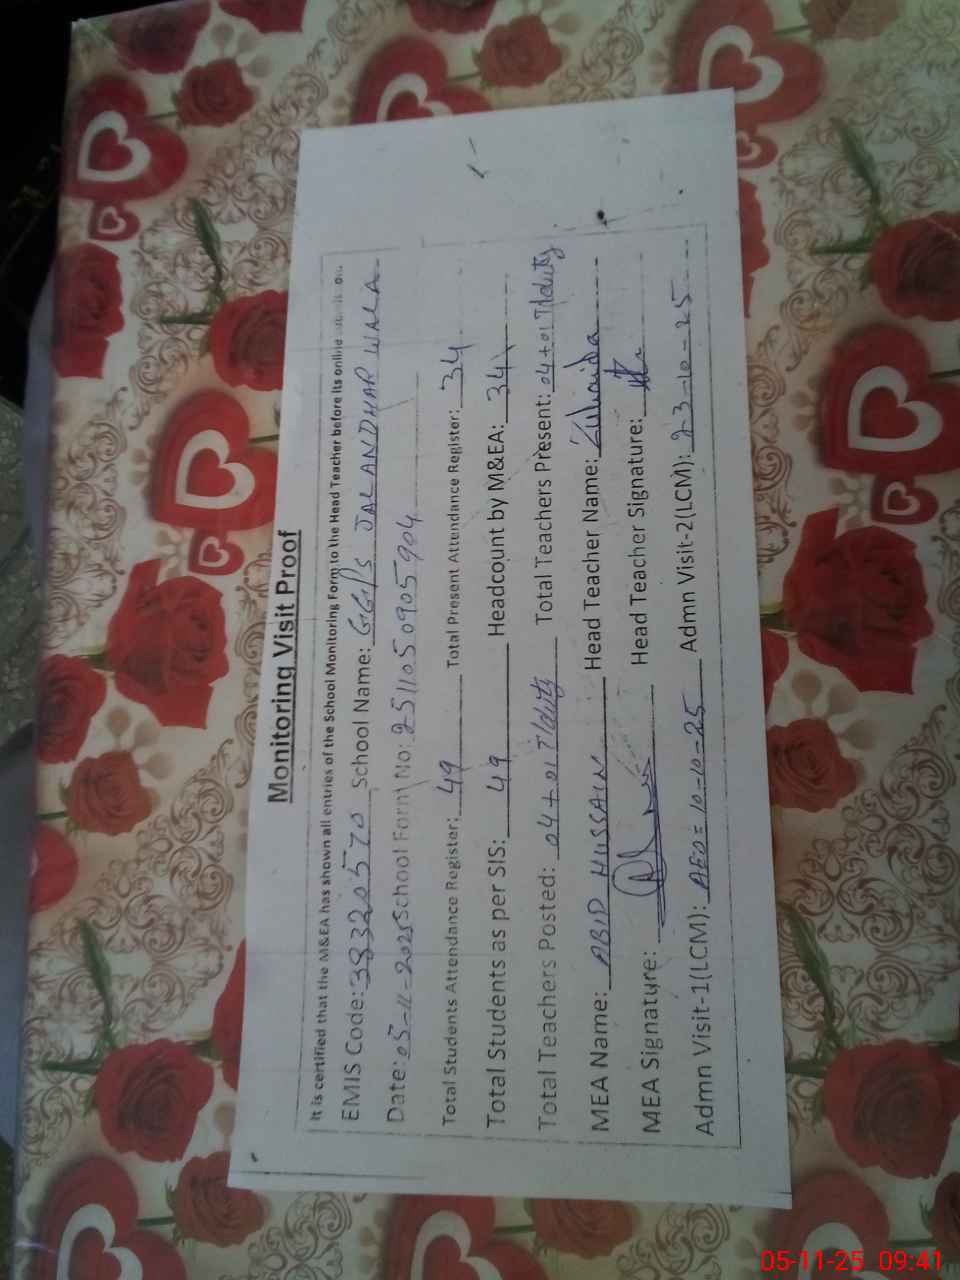 Monitoring Visit Proof
It is certified that the M&EA has shown all entries of the School Monitoring Form to the Head Teacher before its online
EMIS Code: 38320570 School Name: GGPS JALANDHAR WALA
Date: 05-11-2025 School Form No: 2511050905904
Total Students Attendance Register: 49 Total Present Attendance Register: 34
Total Students as per SIS: 49 Headcount by M&EA: 34
Total Teachers Posted: 04+01 T/duty Total Teachers Present: 04+01 T/duty
MEA Name: ABID HUSSAIN Head Teacher Name: Zubaida
MEA Signature: Head Teacher Signature:
Admn Visit-1(LCM): AEO= 10-10-25 Admn Visit-2(LCM): 23-10-25
05-11-25 09:41